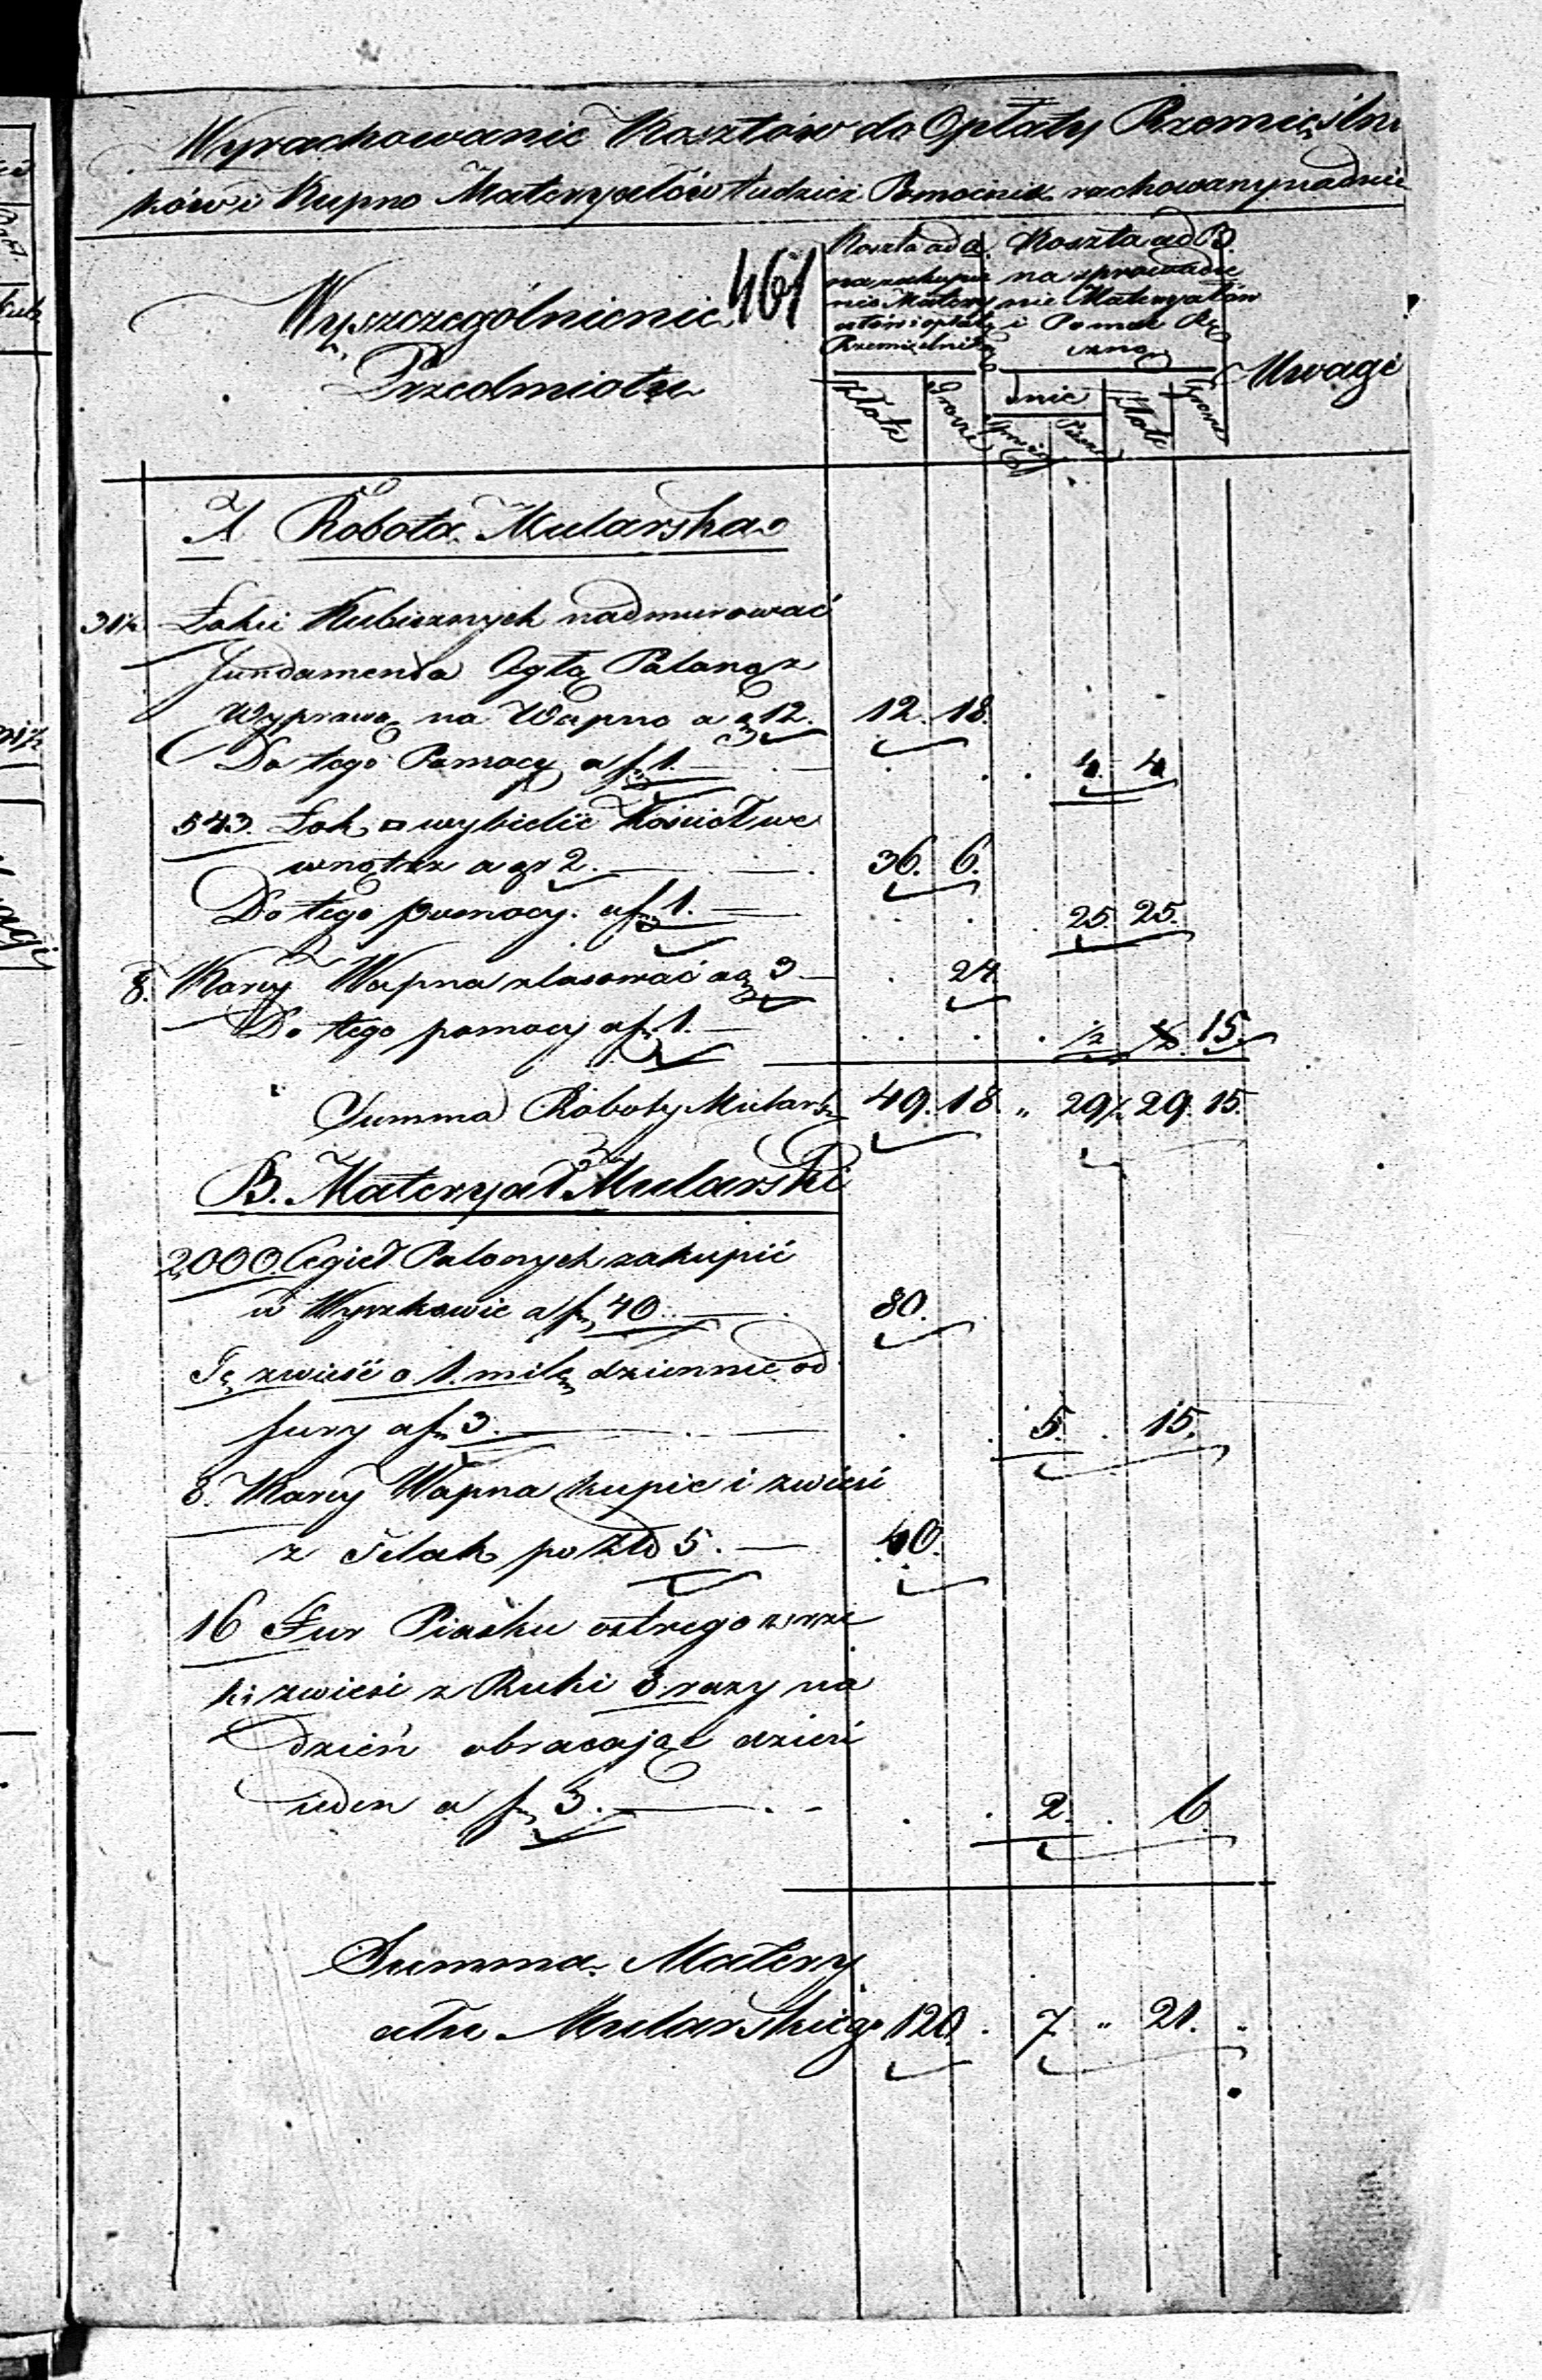 Wyrachowanie Kosztów do Opłaty Rzemieślni
ków i Kupno Materyałów tudzież Pomocnik rachowany na dnie
461
Wyszczególnienie
Przedmiotu
Koszta ad A.
na zakupie
nie Matery
ałów i opłatę
Rzemieślnika
Złote
Grosze
Koszta ad B.
na sprowadze
nie Materyałów
i Pomoc Rę
czną
dnie
Sprzęż
Piesze
Złote
Grosze
Uwagi
A Robota Mularska
31½ Łokci Kubicznych nadmurować
fundamenta Cegłą Paloną z
Wyprawą na Wapno a g 12. 12. 18.
Do tego Pomocy a f 1. — 4. 4.
543. Łok □ wybielić Kościół we
wnątrz a gr 2. — 36. 6.
Do tego pomocy. a f 1. — 25. 25.
8. Karcy Wapna zlasować a g 3 — . 24.
Do tego pomocy a f. 1. — ½ 15.
Summa Roboty Mulars 49. 18. " 29½ 29. 15.
B. Materyał Mularski
2,000. Cegieł Palonych zakupić
w Wyszkowie a f 40. — 80.
Tę zwieść o 1. milę dziennie od
fury a f 3. — 5. . 15.
8. Karcy Wapna kupić i zwieść
z po Zło 5. — 40.
16 Fur Piasku ostrego z rze
ki zwieść z 8 razy na
dzień obracając dzień
ieden a f 3. — 2. . 6.
Summa Matery
ału Mularskiego 120. . 7. " 21. "